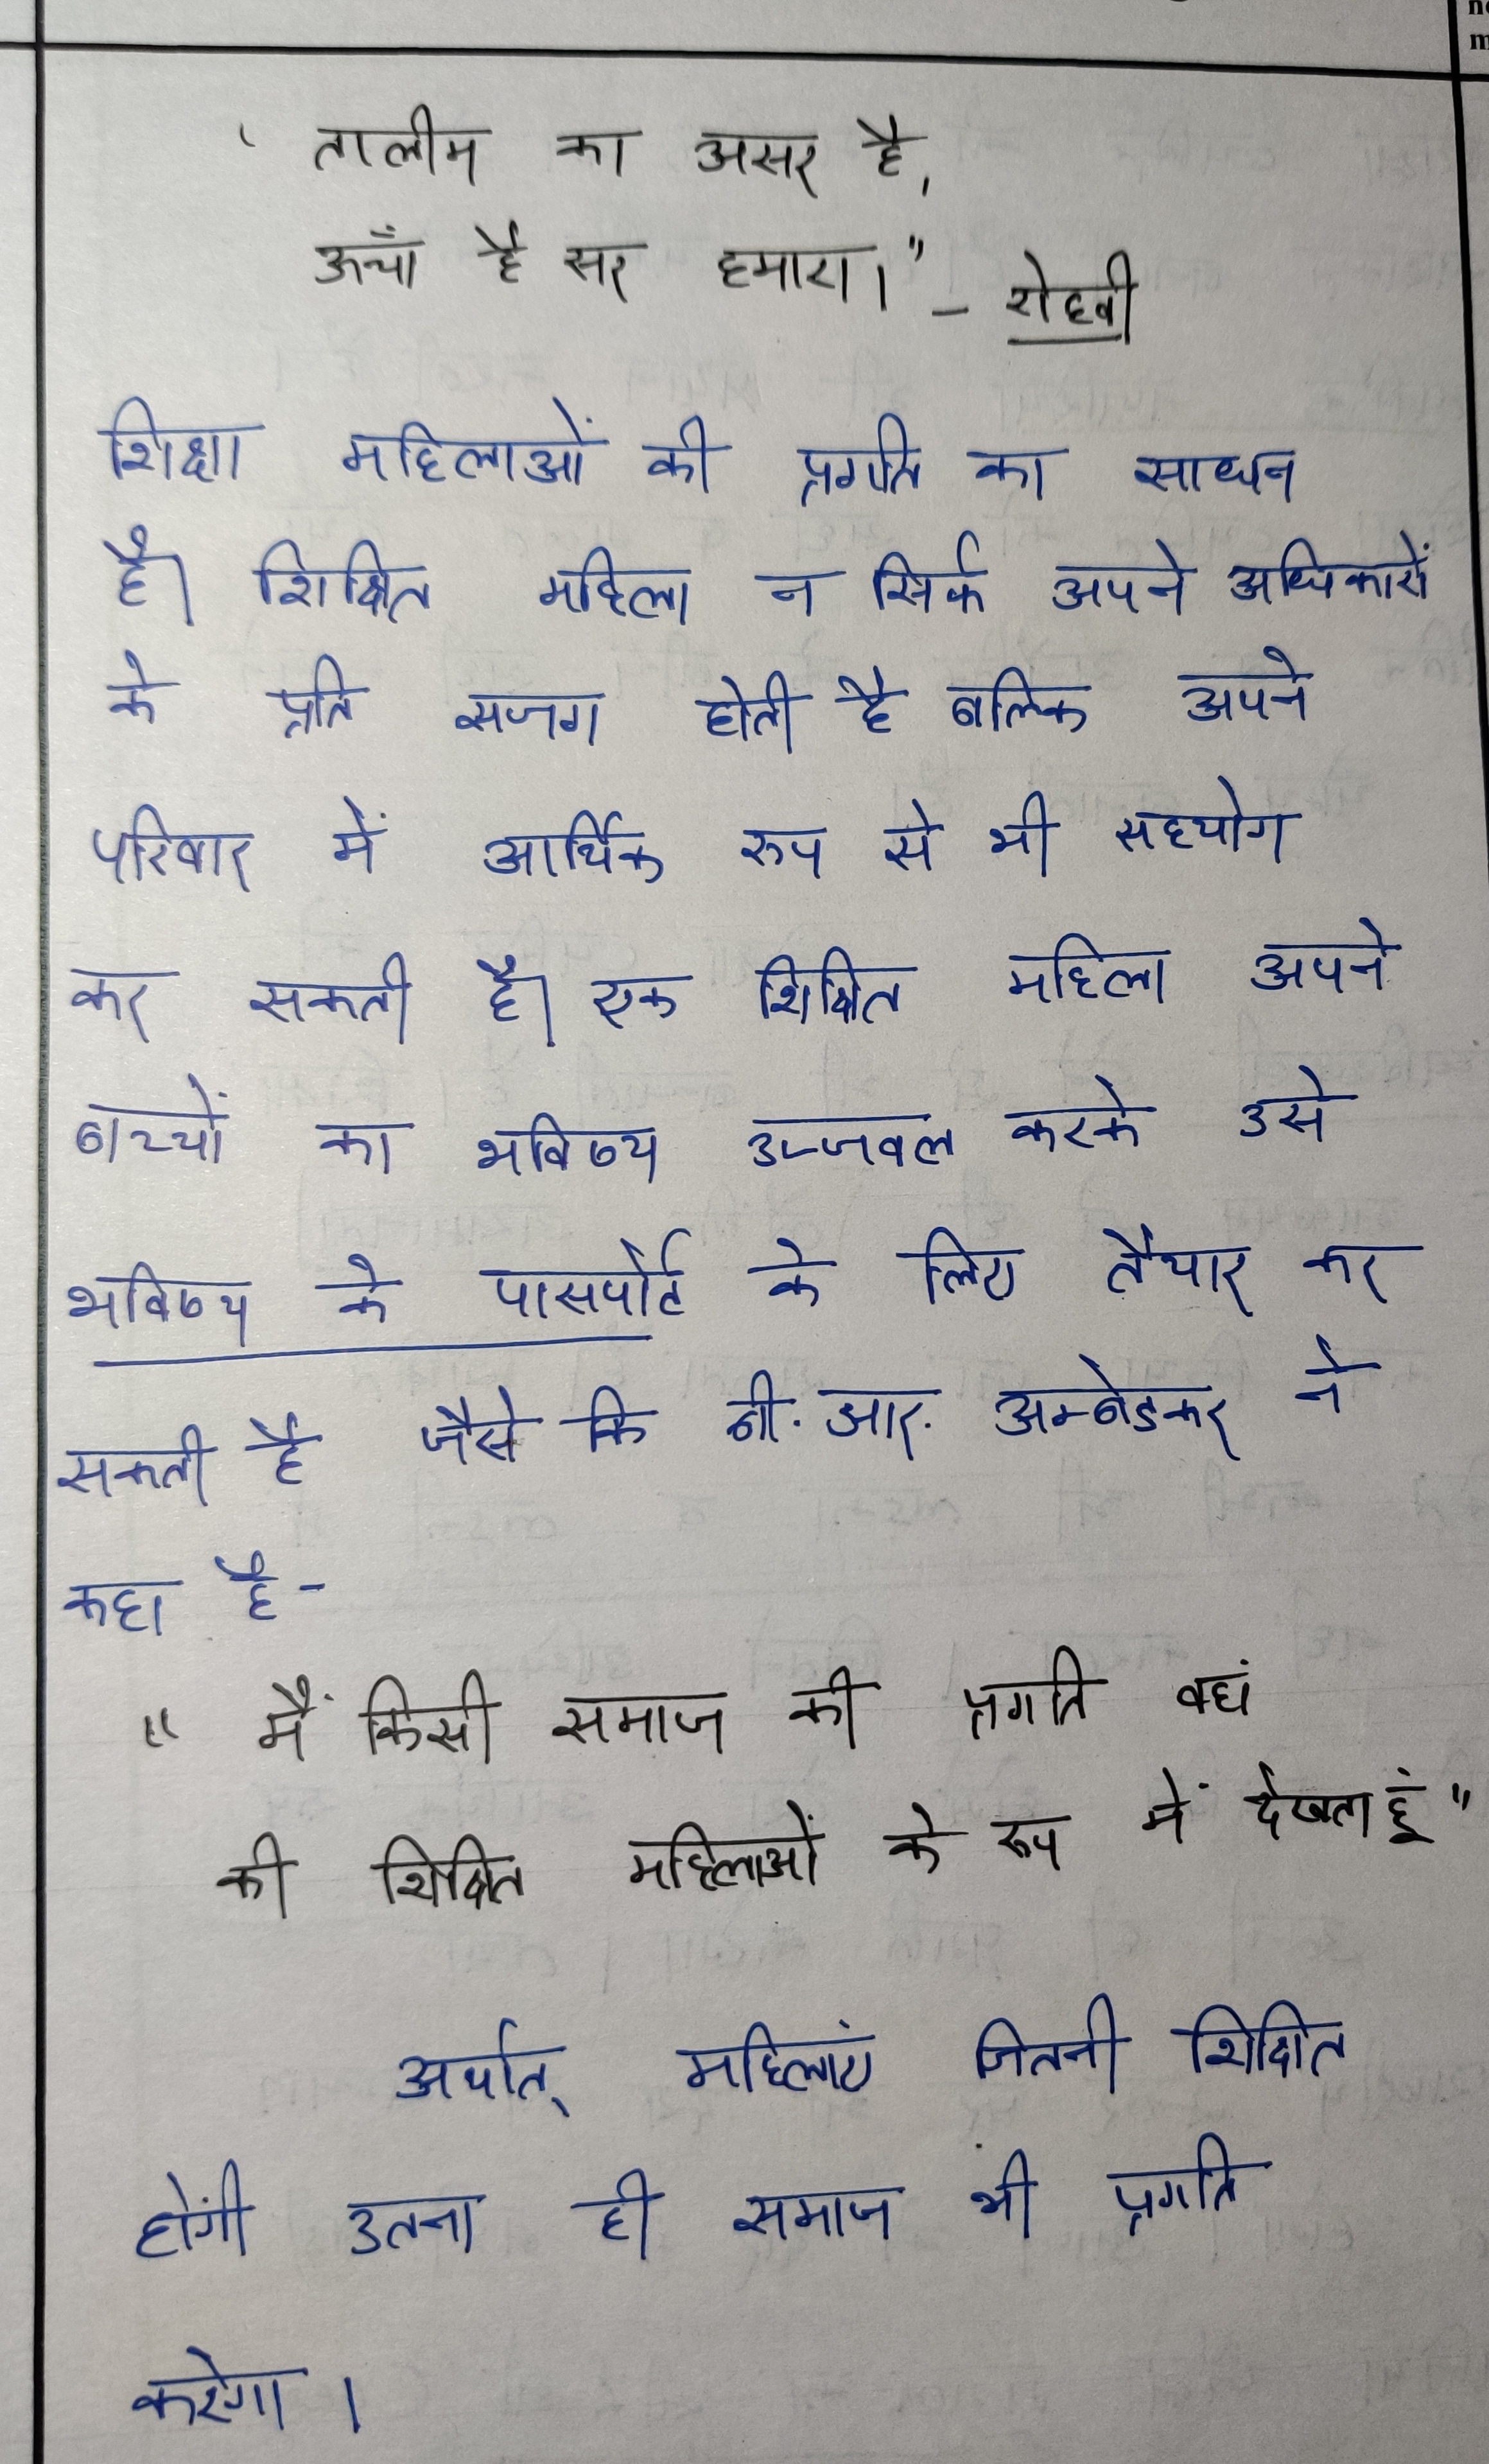 ' तालीम का असर है,
ऊचाँ है सर हमारा।" -
शिक्षा महिलाओं की प्रगति का साधन
है। शिक्षित महिला न सिर्फ अपने अधिकारों
के प्रति सजग होती है बल्कि अपने
परिवार में आर्थिक रुप से भी सहयोग
कर सकती है। एक शिक्षित महिला अपने
बच्चों का भविष्य उज्जवल करके उसे
भविष्य के पासपोर्ट के लिए तैयार कर
सकती है जैसे कि बी. आर. अम्बेडकर ने
कहा है-
" मैं किसी समाज की प्रगति वहां
की शिक्षित महिलाओं के रूप में देखता हूं"
अर्थात् महिलाएं जितनी शिक्षित
होंगी उतना ही समाज भी प्रगति
करेगा ।